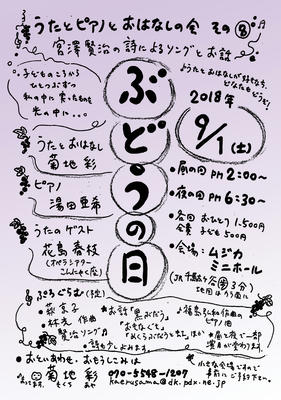 うたとピアノとおはなしの会 その⑧
宮澤賢治の詩によるソングとお話
子どものころから
ひとつぶずつ
私の中に実ったものを
光の中に...
うたとおはなしが好きなら、
どなたもどうぞ!
ぶどうの日
2018年
9/1(土)
うたとおはなし
菊地 彩
ピアノ
湯田亜希
うたのゲスト
花島春枝
(オペラシアター
こんにゃく座)
昼の回 PM 2:00〜
夜の回 PM 6:30〜
各回 おひとり 1,500円
会費 子ども 500円
会場: ムジカ
ミニホール
3分)
ぷろぐらむ(予定)
萩 京子
林 光 作曲
賢治ソング
お話「
詩も少しよみます。
ピアノ
曲
昼と夜で一部
変わります。
おといあわせ・おもうしこみは
菊地 彩
070-5548-1207
kaerusama@dk.pdx.ne.jp
小さな会場ですので
ご予約下さい。